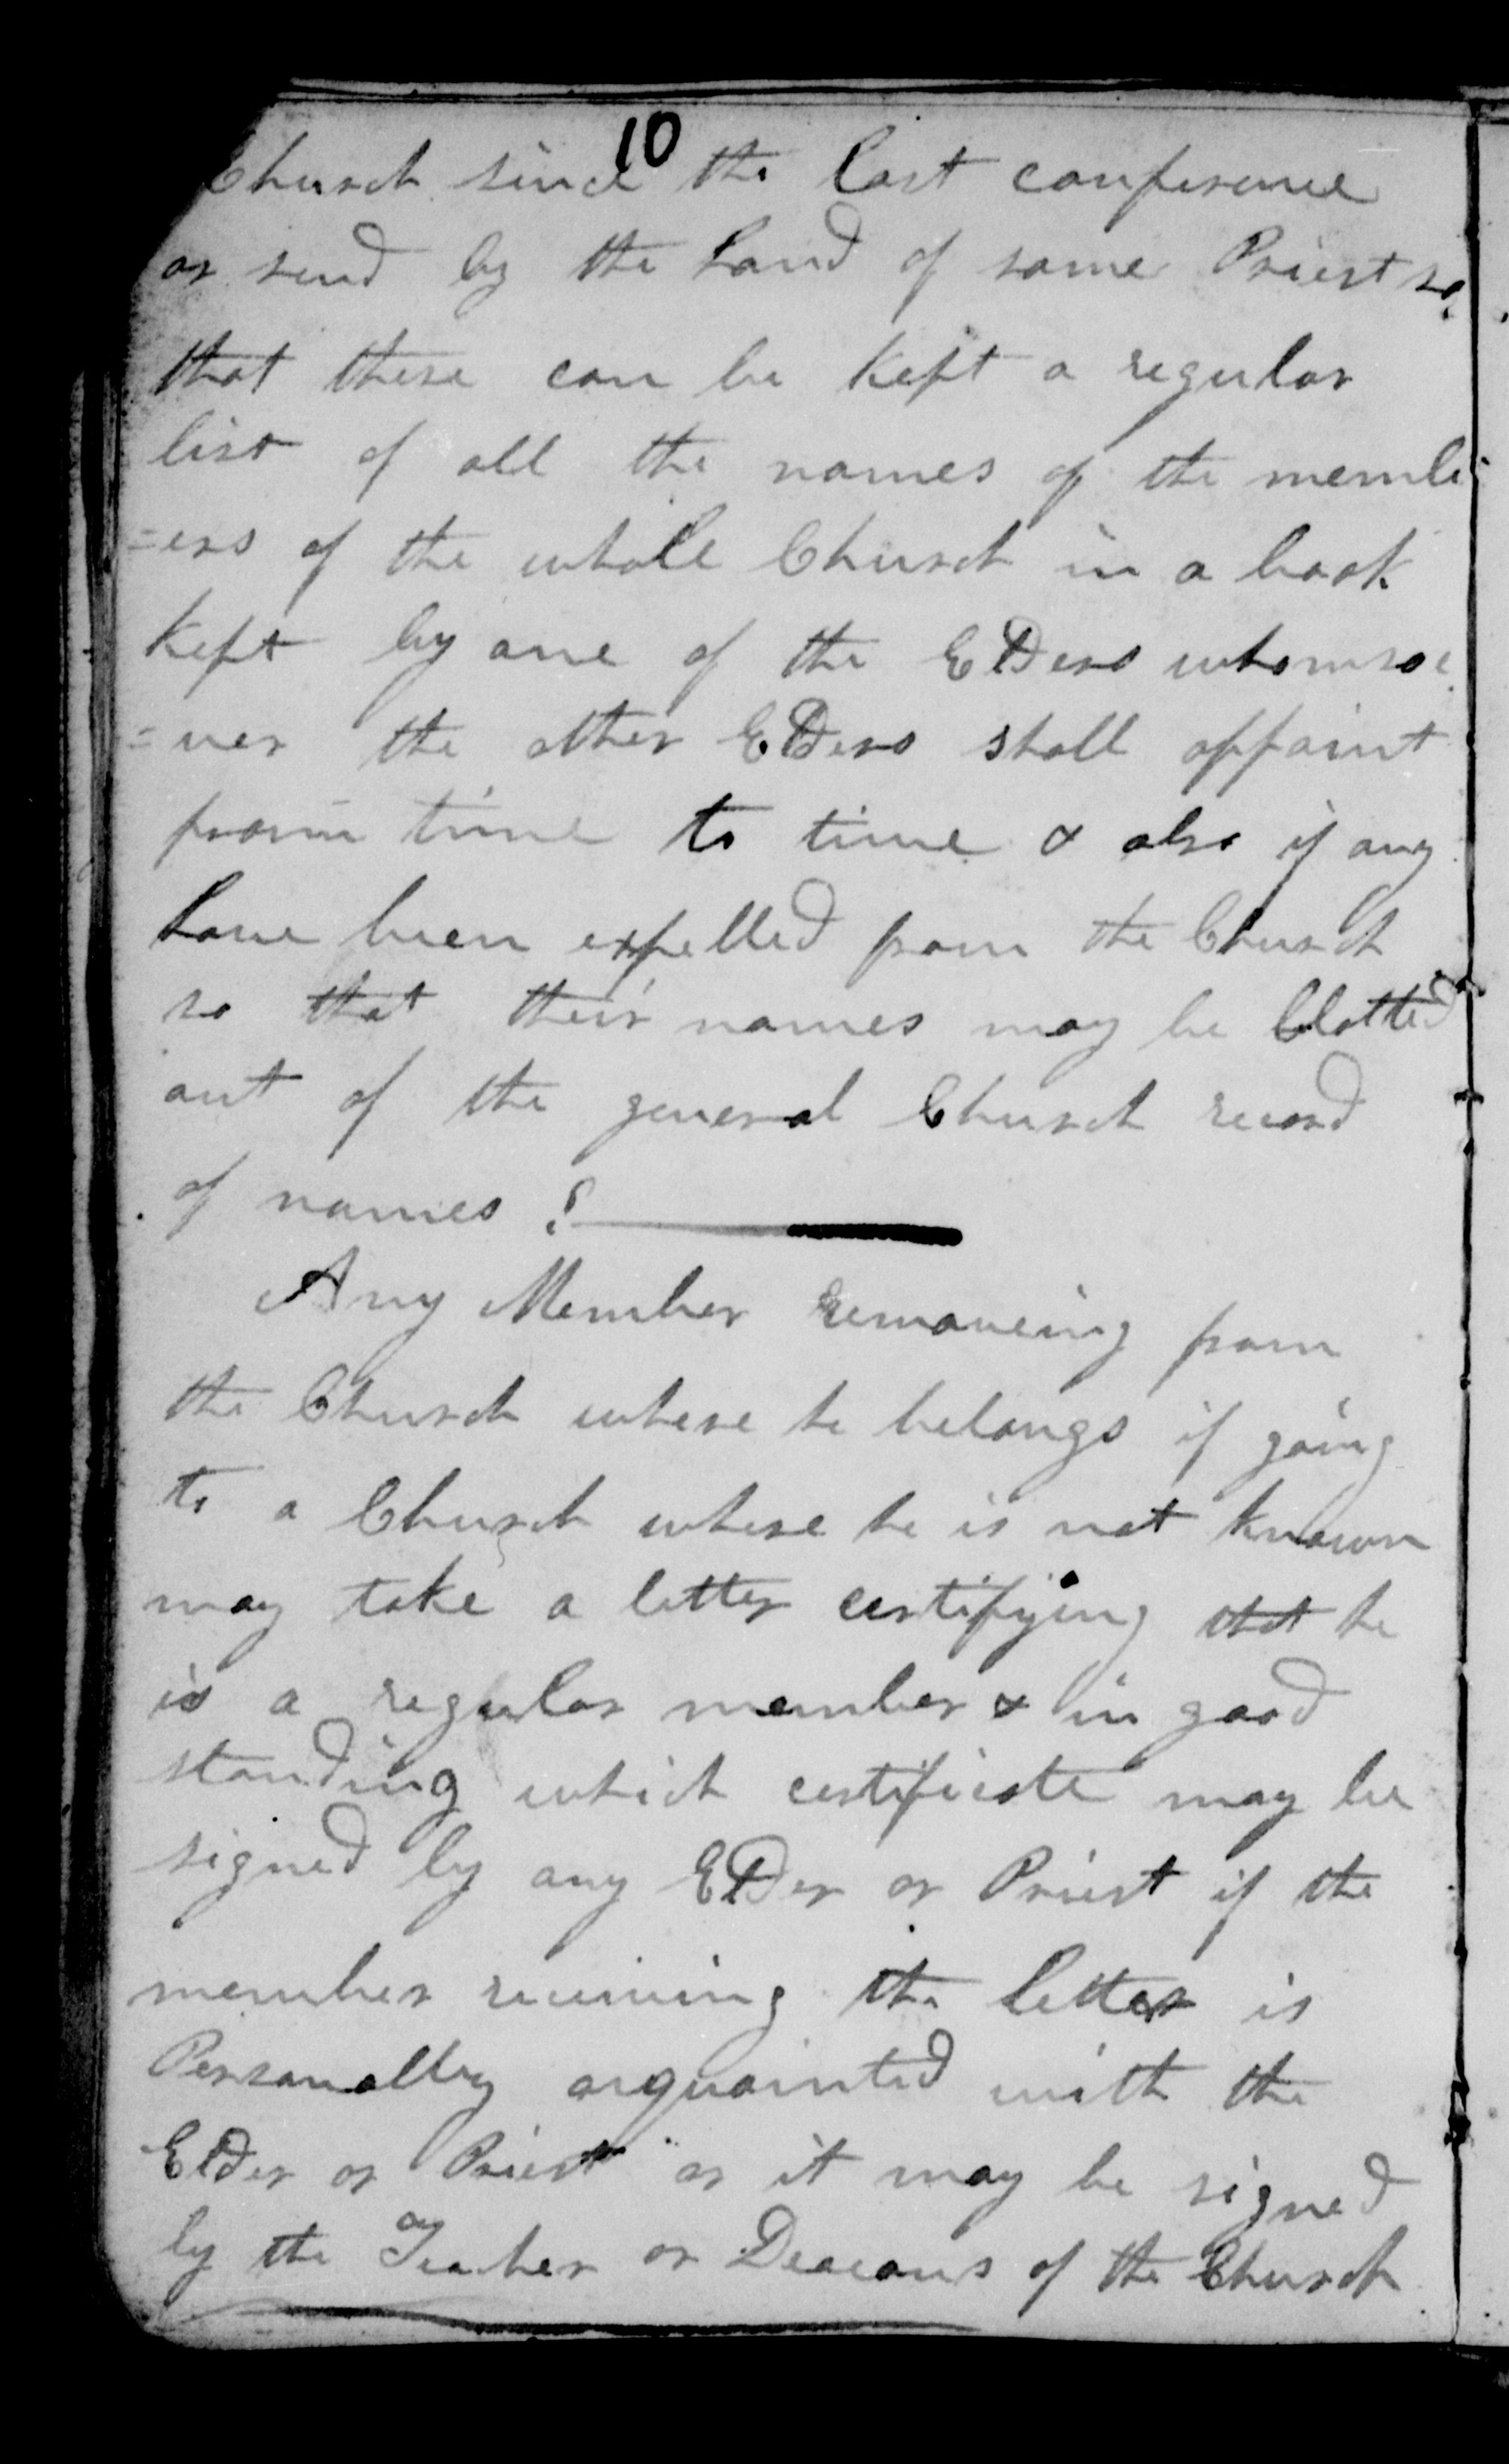 10
Church since the last conference
or send by the hand of some Priest so
that there can be kept a regular
list of all the names of the memb
=ers of the whole Church in a book
kept by one of the Elders whomsoe
=ver the other Elders shall appoint
from time to time & also if any
have been expelled from the Church
so that their names may be blotted
out of the general Church record
of names !
Any Member removeing from
the Church where he belongs if going
to a Church where he is not known
may take a letter certifying that he
is a regular member & in good
standing which certificate may be
signed by any Elder or Priest if the
member receiving the letter is
Personally acquainted with the
Elder or Priest or it may be signed
by the Teacher or Deacons of the Church